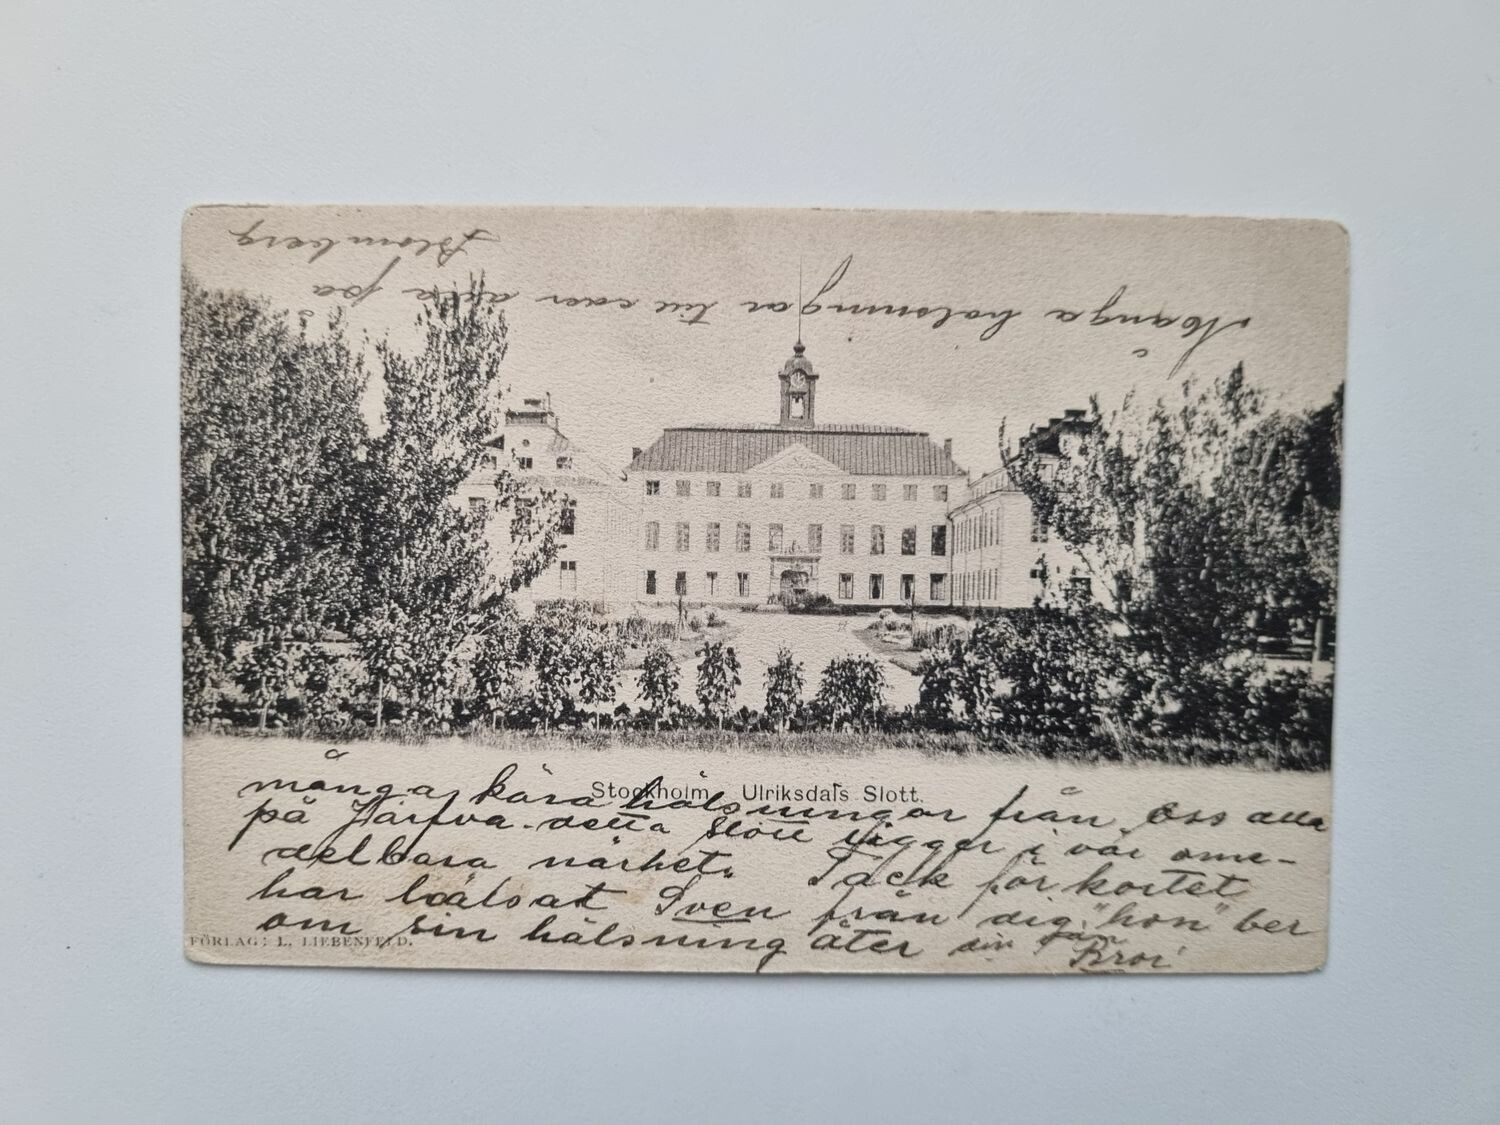 Många hälsningar till eder alla på
Blomberg
Stockholm. Ulriksdals Slott.
många kära hälsningar från oss alla
på Järfva. detta slott ligger i vår ome-
delbara närhet. Tack för kortet
har hälsat Sven från dig, "hon" ber
om sin hälsning åter din
FÖRLAG: L. LIEBENFELD.